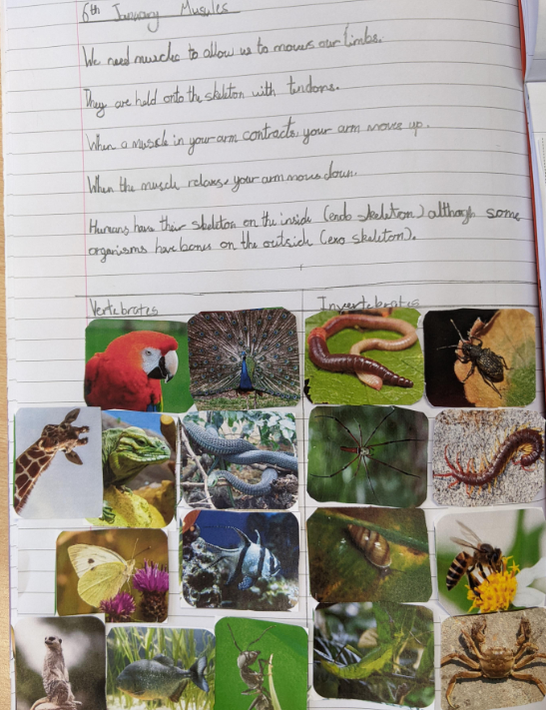 6th January Muscles
We need muscles to allow us to moves our limbs.
They are held onto the skeleton with tendons.
When a muscle in your arm contracts, your arm moves up.
When the muscle relaxes your arm moves down.
Humans have their skeleton on the inside (endo skeleton) although some
organisms have bones on the outside (exo skeleton).
Vertebrates
Invertebrates